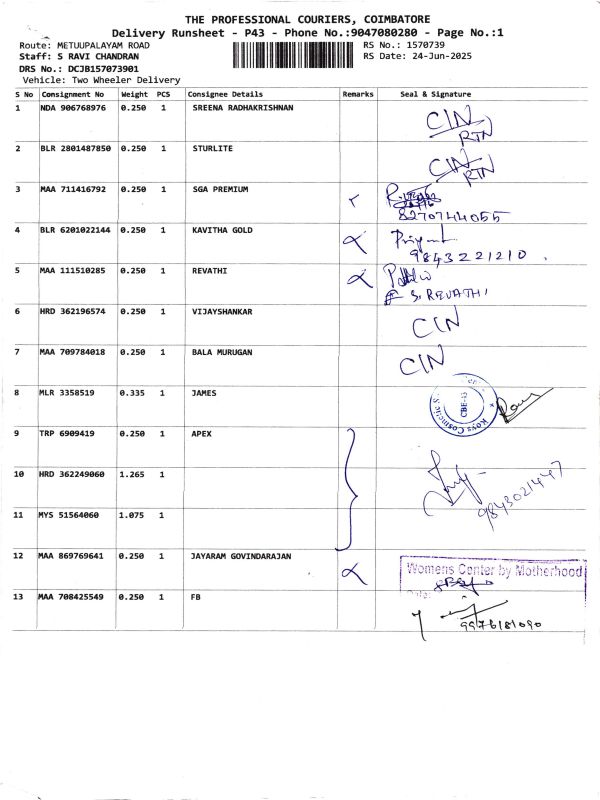 THE PROFESSIONAL COURIERS, COIMBATORE
Delivery Runsheet - P43 - Phone No.:9047080280 - Page No.:1
Route: METUUPALAYAM ROAD RS No.: 1570739
Staff: S RAVI CHANDRAN RS Date: 24-Jun-2025
DRS No.: DCJB157073901
Vehicle: Two Wheeler Delivery
S No Consignment No Weight PCS Consignee Details Remarks Seal & Signature
1 NDA 906768976 0.250 1 SREENA RADHAKRISHNAN CIN
RTN
2 BLR 2801487850 0.250 1 STURLITE CIN
RTN
3 MAA 711416792 0.250 1 SGA PREMIUM
8270744055
4 BLR 6201022144 0.250 1 KAVITHA GOLD
9843221210.
5 MAA 111510285 0.250 1 REVATHI
S. REVATHI
6 HRD 362196574 0.250 1 VIJAYSHANKAR CIN
7 MAA 709784018 0.250 1 BALA MURUGAN CIN
8 MLR 3358519 0.335 1 JAMES CBE-43
9 TRP 6909419 0.250 1 APEX
10 HRD 362249060 1.265 1
9843021447
11 MYS 51564060 1.075 1
12 MAA 869769641 0.250 1 JAYARAM GOVINDARAJAN
Womens Center by Motherhood
13 MAA 708425549 0.250 1 FB
9976181090